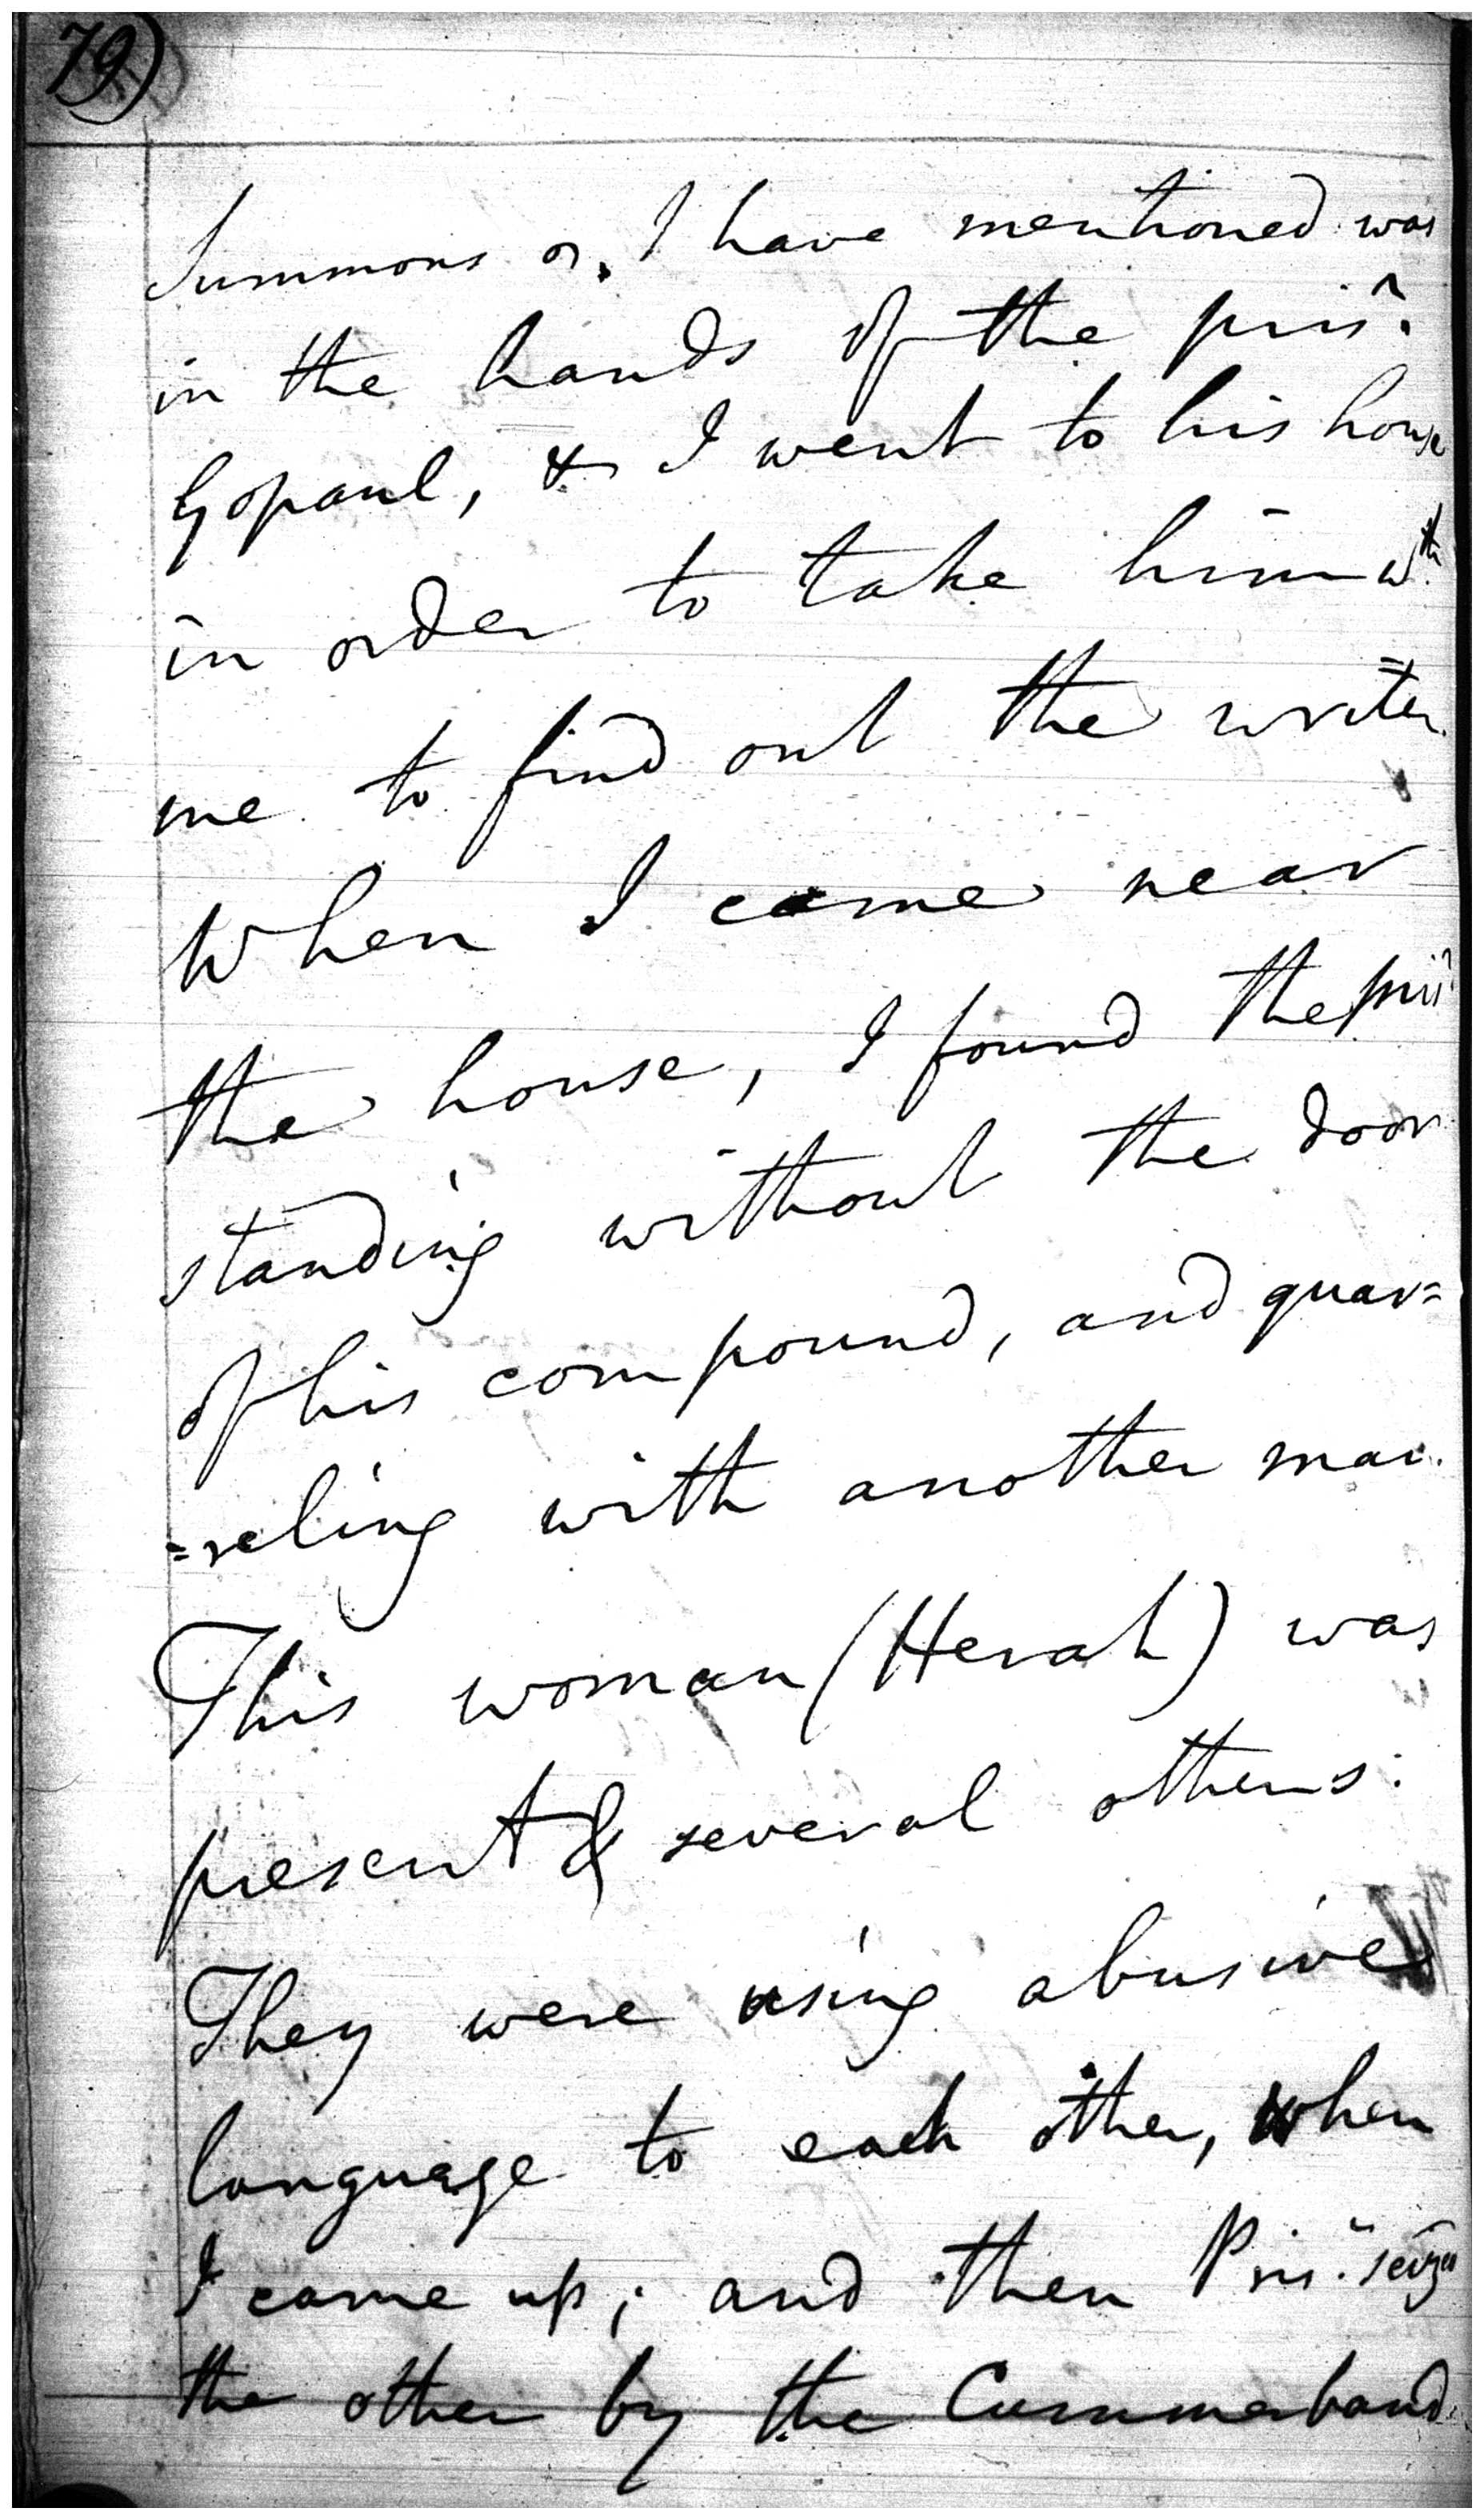 79)
Summons as I have mentioned was
in the hands of the pris.r
Gopaul, & I went to his house
in order to take him w.th
me to find out the writer.
When I came near
the house, I found the pris.r
standing without the door
of his compound, and quar=
=reling with another man.
This woman (Herah) was
present & several others.
They were using abusive
language to each other, when
I came up; and then Pris.r seized
the other by the Cummerband